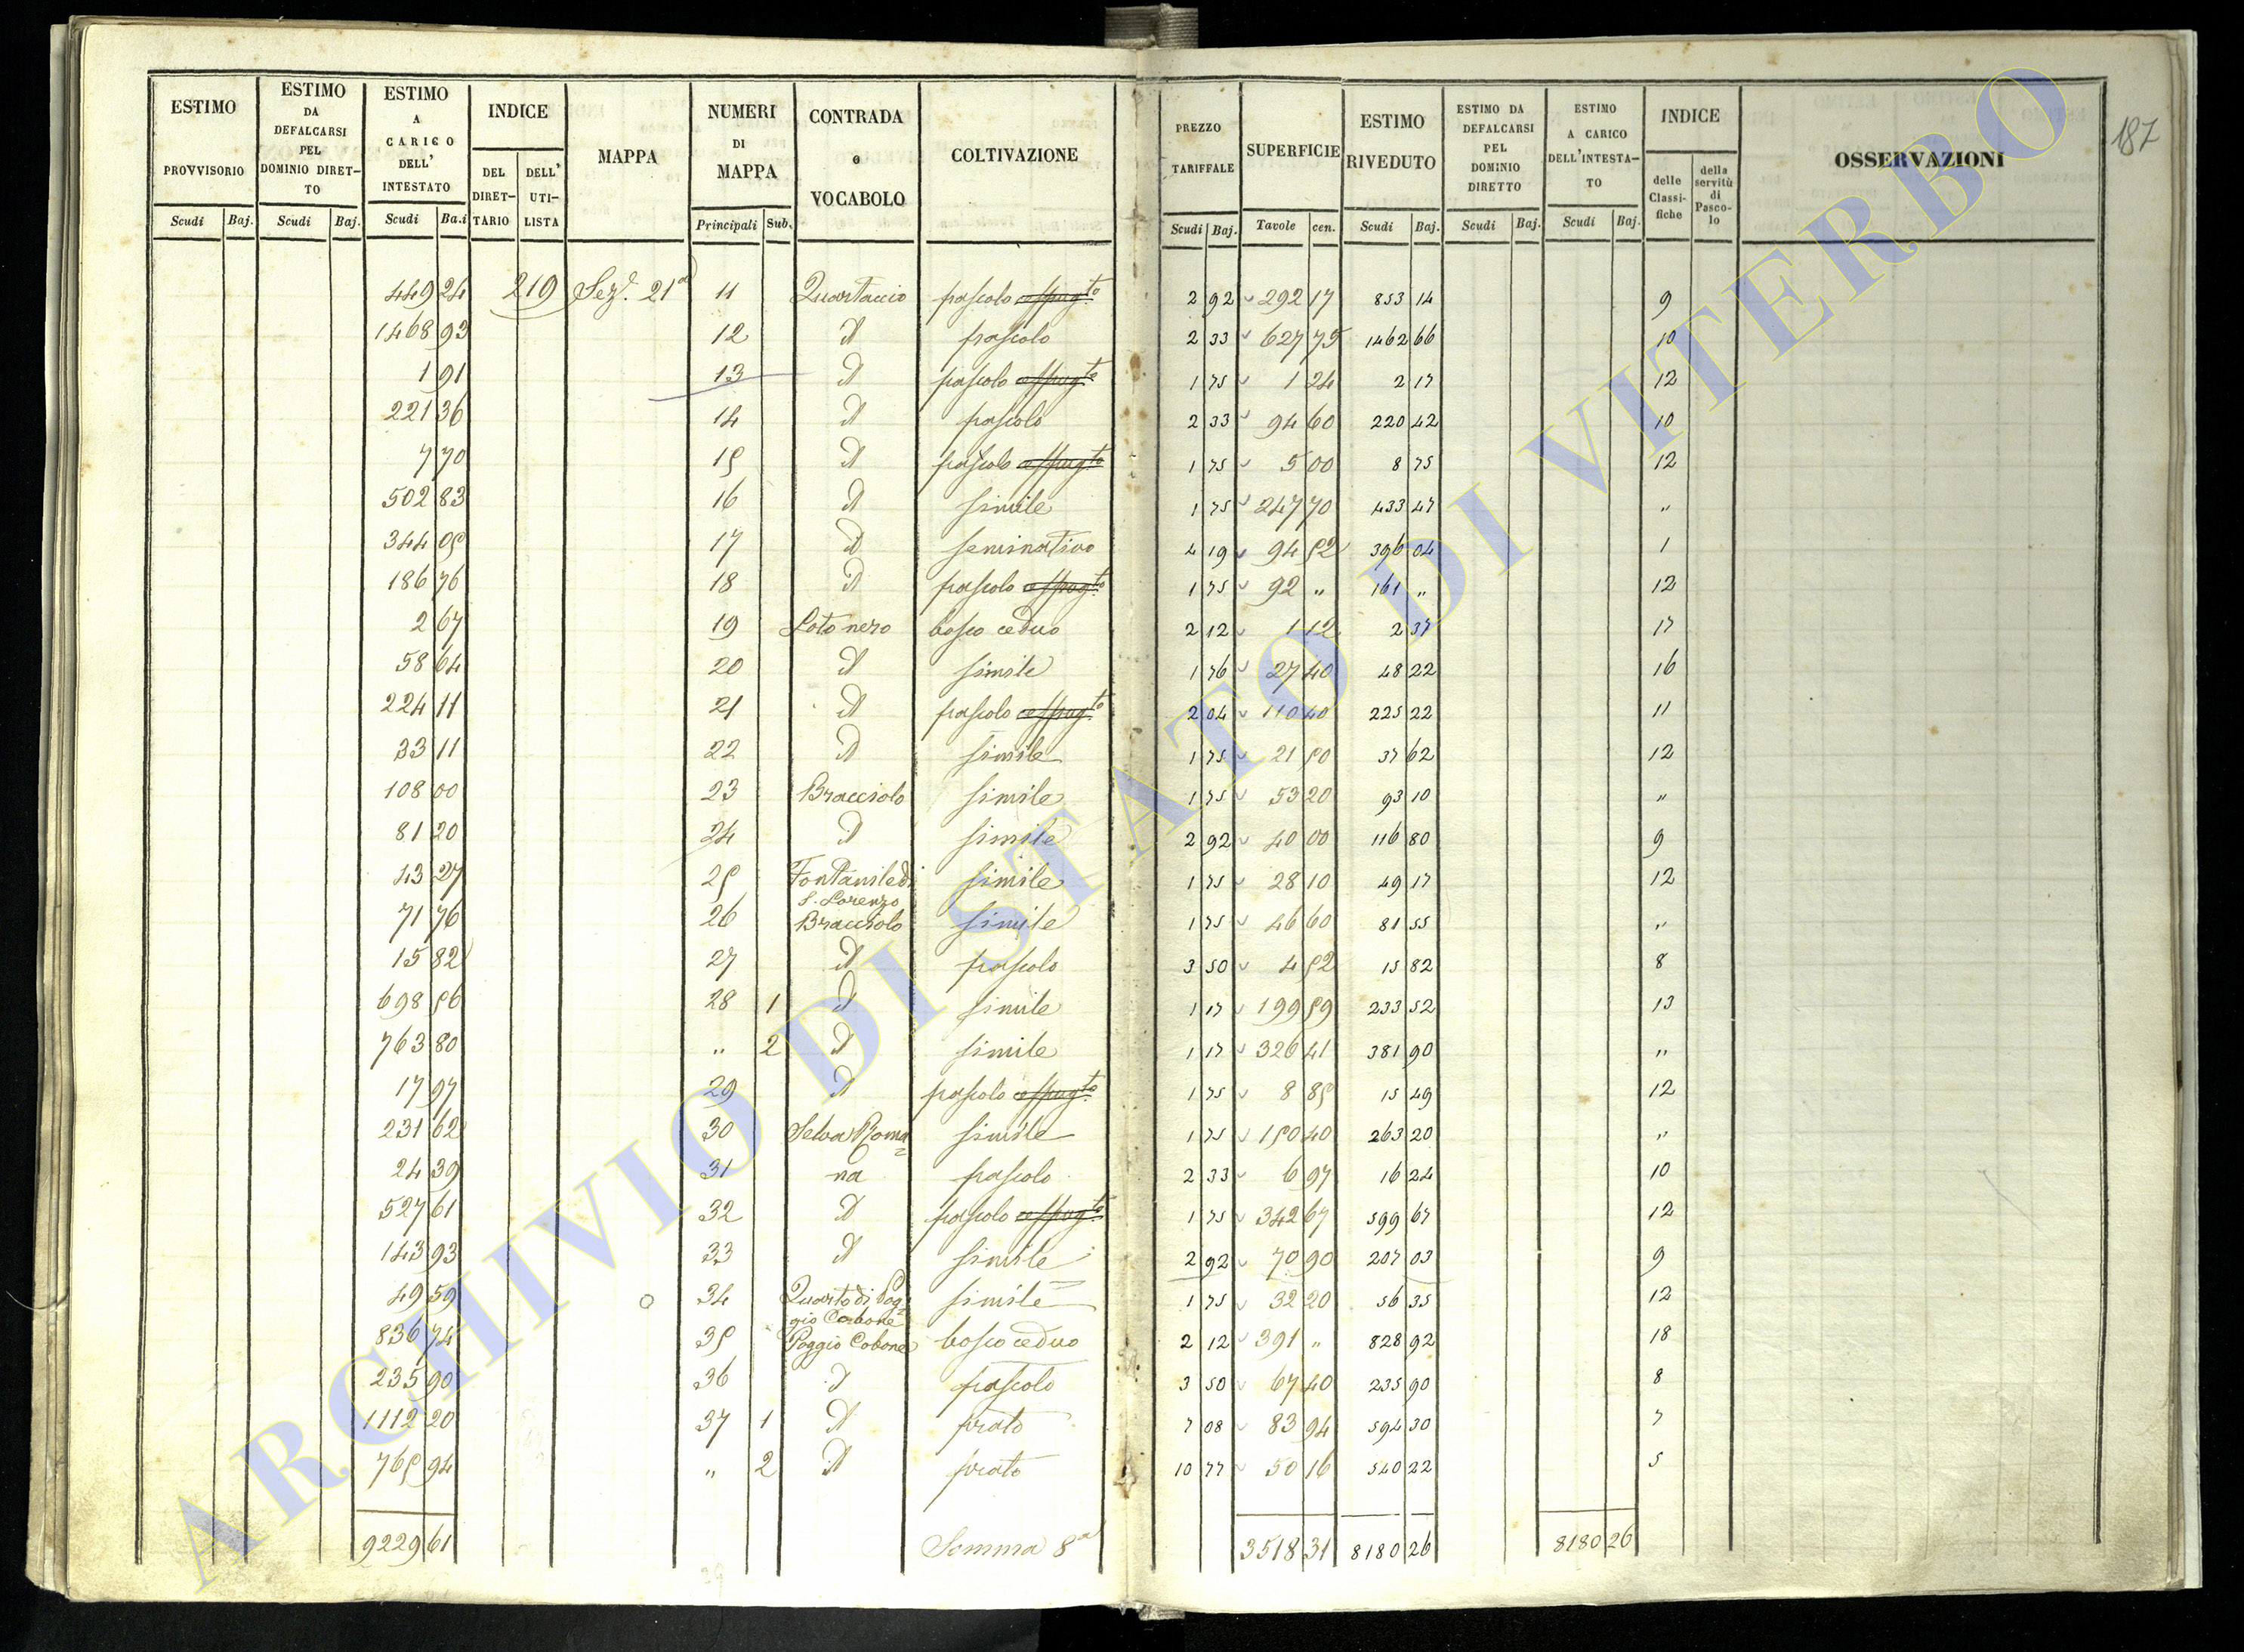 187
ESTIMO PROVVISORIO
ESTIMO DA DEFALCARSI PEL DOMINIO DIRETTO
ESTIMO A CARICO DELL' INTESTATO
INDICE
DEL DIRETTARIO
DELL' UTILISTA
MAPPA
NUMERI DI MAPPA
CONTRADA o VOCABOLO
COLTIVAZIONE
PREZZO TARIFFALE
SUPERFICIE
ESTIMO RIVEDUTO
ESTIMO DA DEFALCARSI PEL DOMINIO DIRETTO
ESTIMO A CARICO DELL'INTESTATO
INDICE
delle Classifiche
della servitù di Pascolo
OSSERVAZIONI
Scudi Baj. Scudi Baj. Scudi Ba.i Principali Sub. Scudi Baj. Tavole cen. Scudi Baj. Scudi Baj. Scudi Baj.
449 24 219 Sez.e 21a 11 Quartaccio pascolo cespug.to 2 92 292 17 853 14 9
1468 93 12 d pascolo 2 33 627 75 1462 66 10
1 91 13 d pascolo cespug.to 1 75 1 24 2 17 12
221 36 14 d pascolo 2 33 94 60 220 42 10
7 70 15 d pascolo cespug.to 1 75 5 00 8 75 12
502 83 16 d simile 1 75 247 70 433 47 "
344 05 17 d seminativo 4 19 94 52 396 04 1
186 76 18 d pascolo cespug.to 1 75 92 " 161 " 12
2 67 19 Loto nero bosco ceduo 2 12 1 12 2 37 17
58 64 20 d simile 1 76 27 40 48 22 16
224 11 21 d pascolo cespug.to 2 04 110 40 225 22 11
33 11 22 d simile 1 75 21 50 37 62 12
108 00 23 Bracciolo simile 1 75 53 20 93 10 "
81 20 24 d simile 2 92 40 00 116 80 9
43 27 25 Fontanile di S. Lorenzo simile 1 75 28 10 49 17 12
71 76 26 Bracciolo simile 1 75 46 60 81 55 "
15 82 27 d pascolo 3 50 4 52 15 82 8
698 56 28 1 d simile 1 17 199 59 233 52 13
763 80 " 2 d simile 1 17 326 41 381 90 "
17 97 29 d pascolo cespug.to 1 75 8 85 15 49 12
231 62 30 Selva Roma= simile 1 75 150 40 263 20 "
24 39 31 na pascolo 2 33 6 97 16 24 10
527 61 32 d pascolo cespug.to 1 75 342 67 599 67 12
143 93 33 d simile 2 92 70 90 207 03 9
49 59 34 Quarto di Pog= gio Cobone simile 1 75 32 20 56 35 12
836 74 35 Poggio Cobone bosco ceduo 2 12 391 " 828 92 18
235 90 36 d pascolo 3 50 67 40 235 90 8
1112 20 37 1 d prato 7 08 83 94 594 30 7
765 94 " 2 d prato 10 77 50 16 540 22 5
9229 61 Somma 8a 3518 31 8180 26 8180 26
ARCHIVIO DI STATO DI VITERBO